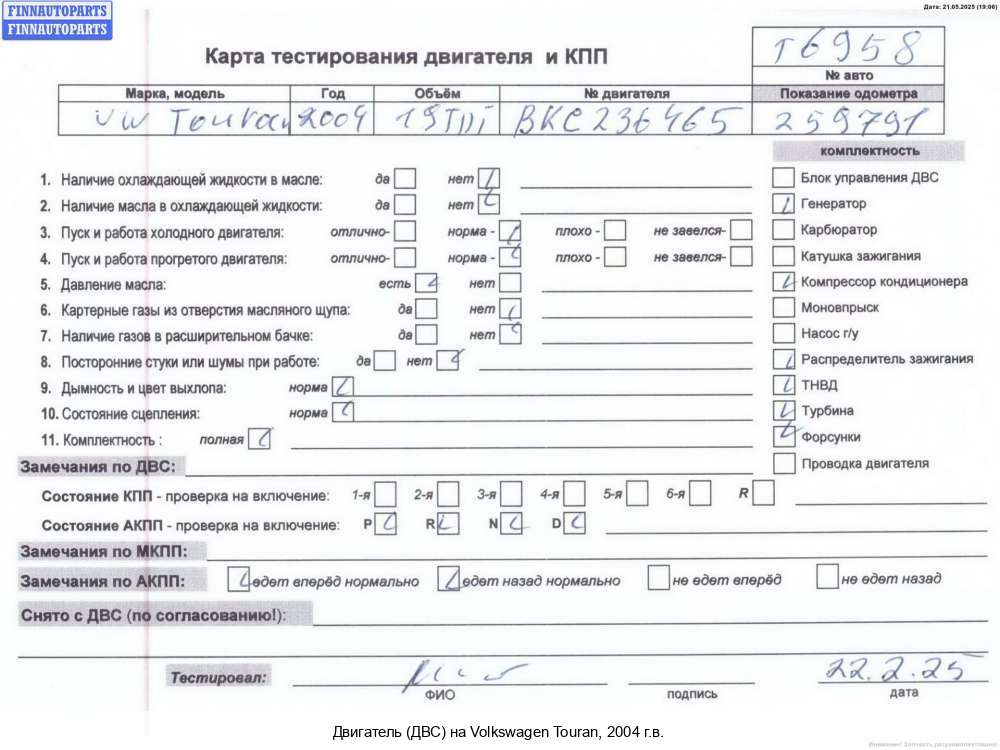 FINNAUTOPARTS
FINNAUTOPARTS
Дата: 21.05.2025 (19:06)
Карта тестирования двигателя и КПП
T6958
№ авто
Марка, модель Год Объём № двигателя Показание одометра
VW Touran 2004 19TDI BKC236465 259791
комплектность
1. Наличие охлаждающей жидкости в масле: да нет Блок управления ДВС
2. Наличие масла в охлаждающей жидкости: да нет Генератор
3. Пуск и работа холодного двигателя: отлично- норма - плохо - не завелся- Карбюратор
4. Пуск и работа прогретого двигателя: отлично- норма - плохо - не завелся- Катушка зажигания
5. Давление масла: есть нет Компрессор кондиционера
6. Картерные газы из отверстия масляного щупа: да нет Моновпрыск
7. Наличие газов в расширительном бачке: да нет Насос г/у
8. Посторонние стуки или шумы при работе: да нет Распределитель зажигания
9. Дымность и цвет выхлопа: норма ТНВД
10. Состояние сцепления: норма Турбина
11. Комплектность : полная Форсунки
Замечания по ДВС: Проводка двигателя
Состояние КПП - проверка на включение: 1-я 2-я 3-я 4-я 5-я 6-я R
Состояние АКПП - проверка на включение: P R N D
Замечания по МКПП:
Замечания по АКПП: едет вперёд нормально едет назад нормально не едет вперёд не едет назад
Снято с ДВС (по согласованию!):
Тестировал: 22.2.25
ФИО подпись дата
Двигатель (ДВС) на Volkswagen Touran, 2004 г.в.
Внимание! Запчасть разукомплектована!